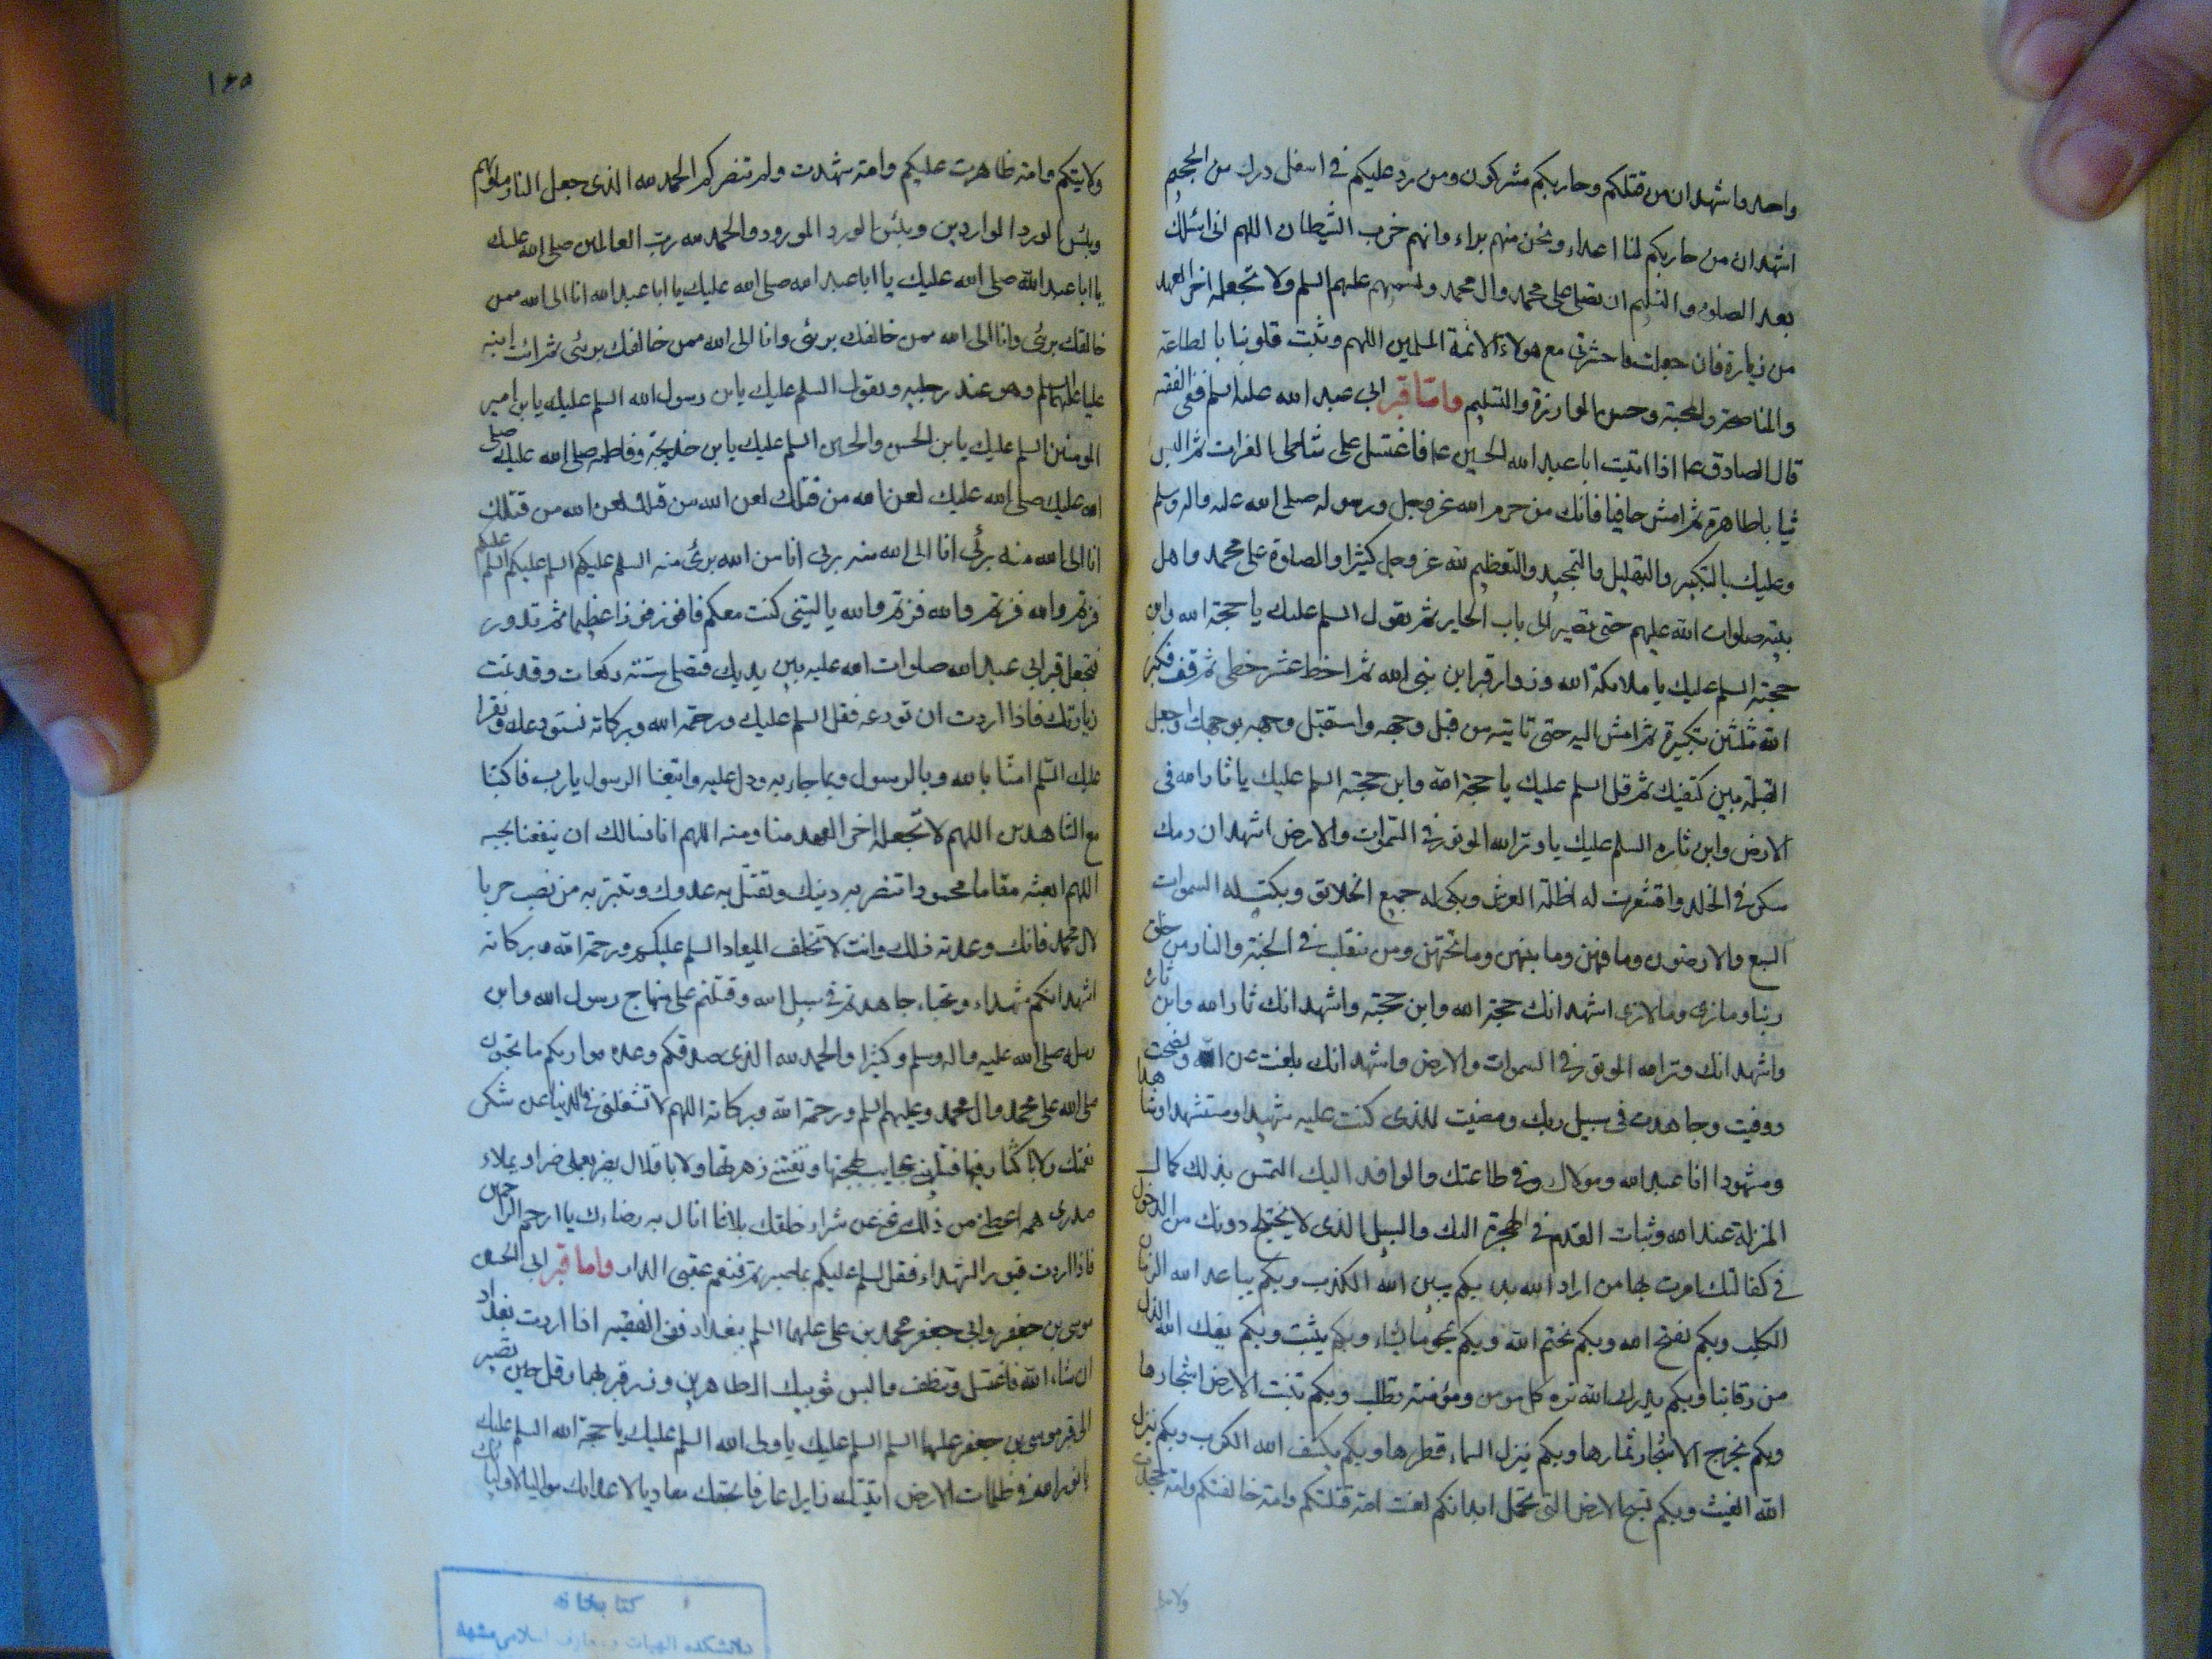 واحد واشهد ان من قتلكم وحاربكم مشركون ومن رد عليكم في اسفل درك من الجحيم
اشهد ان من حاربكم لنا اعداء ونحن منهم براء وانهم حزب الشيطان اللهم اني اسئلك
بعد الصلوة والتسليم ان تصلي على محمد وال محمد وتسميهم عليهم السلم ولا تجعله اخر العهد
من زيارة فان جعلت فاحشرني مع هولاء الائمة المسلمين اللهم وثبت قلوبنا بالطاعة
والمناصحة والمحبة وحسن الموازرة والتسليم واما قبر ابي عبد الله عليه السلم ففي الفقيه
قال الصادق ع اذا اتيت ابا عبد الله الحسين ع فاغتسل على شاطئ الفرات ثم البس
ثيابا طاهرة ثم امش حافيا فانك من حرم الله عز وجل ورسوله صلى الله عليه واله وسلم
وعليك بالتكبير والتهليل والتمجيد والتعظيم لله عز وجل كثيرا والصلوة على محمد واهل
بيته صلوات الله عليهم حتى تصير الى باب الحاير ثم تقول السلم عليك يا حجة الله وابن
حجته السلم عليك يا ملائكة الله وزوار قبر ابن نبي الله ثم اخط عشر خطى ثم قف فكبر
الله ثلثين تكبيرة ثم امش اليه حتى تاتيه من قبل وجهه واستقبل وجهه بوجهك واجعل
القبلة بين كتفيك ثم قل السلم عليك يا حجة الله وابن حجته السلم عليك يا ثار الله في
الارض وابن ثاره السلم عليك يا وتر الله الموتور في السموات والارض اشهد ان دمك
سكن في الخلد واقشعرت له اظلة العرش وبكى له جميع الخلائق وبكت له السموات
السبع والارضون وما فيهن وما بينهن وما تحتهن ومن يتقلب في الجنة والنار من خلق
ربنا وما نرى وما لا نرى اشهد انك حجة الله وابن حجته واشهد انك ثار الله وابن ثاره
واشهد انك وتر الله الموتور في السموات والارض واشهد انك بلغت عن الله ونصحت
ووفيت وجاهدت في سبيل ربك ومضيت للذي كنت عليه شهيدا ومستشهدا وشاهدا
ومشهودا انا عبد الله ومولاك وفي طاعتك والوافد اليك التمس بذلك كمال
المنزلة عند الله وثبات القدم في الهجرة اليك والسبيل الذي لا يختلج دونك من الدخول
في كفالتك امرت بها من اراد الله بدء بكم يبين الله الكذب وبكم يباعد الله الزمان
الكلب وبكم يفتح الله وبكم يختم الله وبكم يمحو ما يشاء وبكم يثبت وبكم يفك الله الذل
من رقابنا وبكم يدرك الله تره كل مومن ومؤمنة تطلب وبكم تنبت الارض اشجارها
وبكم يخرج الاشجار ثمارها وبكم ينزل السماء قطرها وبكم يكشف الله الكرب وبكم ينزل
الله الغيث وبكم تسيخ الارض التي تحمل ابدانكم لعنت امة قتلتكم وامة خالفتكم وامة جحدت
١٤٥
ولايتكم وامة ظاهرت عليكم وامة شهدت ولم تنصركم الحمد لله الذي جعل النار ماواهم
وبئس الورد الواردين وبئس الورد المورود والحمد لله رب العالمين صلى الله عليك
يا ابا عبد الله صلى الله عليك يا ابا عبد الله صلى الله عليك يا ابا عبد الله انا الى الله ممن
خالفك برئ وانا الى الله ممن خالفك برئ وانا الى الله ممن خالفك برئ ثم ائت ابنه
عليا عليهما السلم وهو عند رجليه وتقول السلم عليك يابن رسول الله السلم عليك يابن امير
المومنين السلم عليك يابن الحسن والحسين السلم عليك يابن خديجة وفاطمة صلى الله عليك صلى
الله عليك صلى الله عليك لعن الله من قتلك لعن الله من قتلك لعن الله من قتلك
انا الى الله منه برئ انا الى الله منه برئ انا من الله برئ منه السلم عليكم السلم عليكم السلم عليكم
فزتم والله فزتم والله فزتم والله يا ليتني كنت معكم فافوز فوزا عظيما ثم تدور
فتجعل قبر ابي عبد الله صلوات الله عليه بين يديك فتصلي ستة ركعات وقد تمت
زيارتك فاذا اردت ان تودعه فقل السلم عليك ورحمة الله وبركاته نستودعك ونقرا
عليك السلم امنا بالله وبالرسول وبما جاء به ودل عليه واتبعنا الرسول يارب فاكتبنا
مع الشاهدين اللهم لا تجعله اخر العهد منا ومنه اللهم انا نسالك ان ينفعنا بحبه
اللهم ابعثه مقاما محمودا تنصر به دينك وتقتل به عدوك وتبتر به من نصب حربا
لال محمد فانك وعدته ذلك وانت لا تخلف الميعاد السلم عليكم ورحمة الله وبركاته
اشهد انكم شهداء ونجباء جاهدتم في سبيل الله وقتلتم على منهاج رسول الله وابن
رسوله صلى الله عليه واله وسلم وكثيرا والحمد لله الذي صدقكم وعده واراكم ما تحبون
صلى الله على محمد وال محمد وعليهم السلم ورحمة الله وبركاته اللهم لا تشغلني في الدنيا عن شكر
نعمتك ولا باكثار فيها فتلهيني عجايب بهجتها وتفتنني زهرتها ولا باقلال يضر بعملي ضراو يملاء
صدري همه اعطني من ذلك غنى عن شرار خلقك بلاغا انال به رضاءك يا ارحم الراحمين
فاذا اردت قبور الشهداء فقل السلم عليكم بما صبرتم فنعم عقبى الدار واما قبر ابي الحسن
موسى بن جعفر وابي جعفر محمد بن علي عليهما السلم ببغداد ففي الفقيه اذا اردت بغداد
ان شاء الله فاغتسل وتنظف والبس ثوبيك الطاهرين وزر قبريهما وقل حين تصير
الى قبر موسى بن جعفر عليهما السلم السلم عليك يا ولى الله السلم عليك يا حجة الله السلم عليك
يا نور الله في ظلمات الارض اتيتك زايرا عارفا بحقك معاديا لاعدائك مواليا لاوليائك
كتابخانه
دانشكده الهيات و معارف اسلامى مشهد